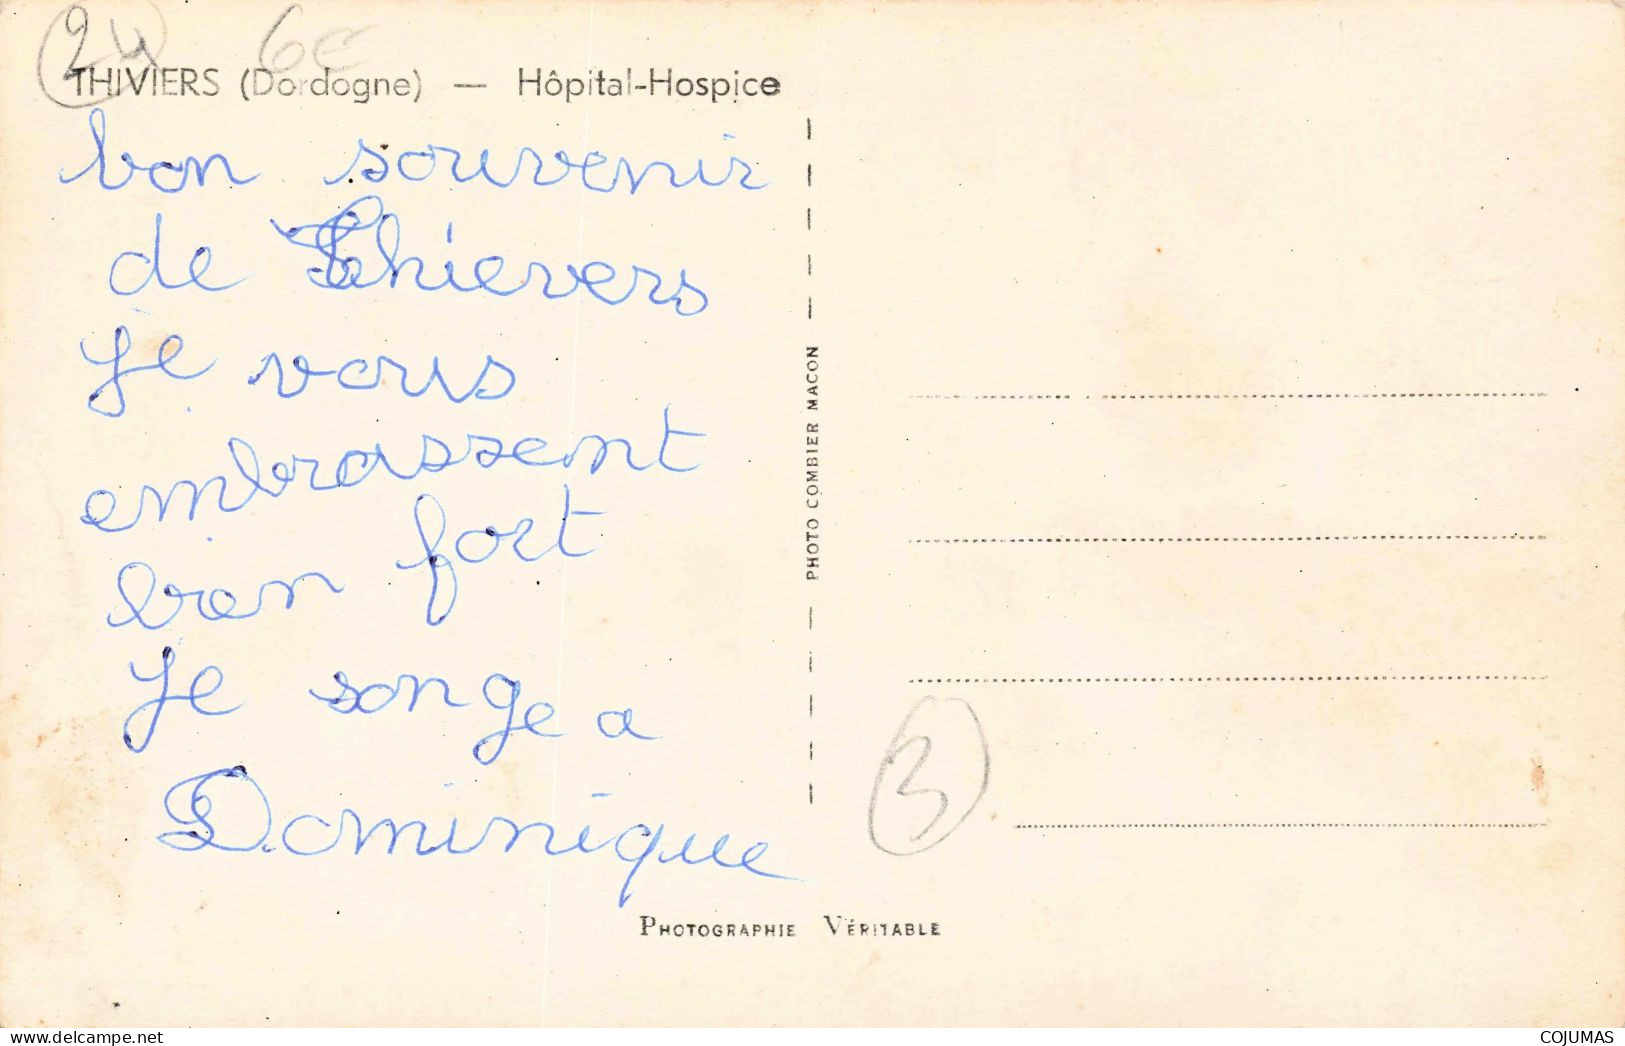 24 6€
THIVIERS (Dordogne) — Hôpital-Hospice
bon souvenir
de Thievers
Je vous
embrassent
bien fort
Je songe a
Dominique
PHOTO COMBIER MACON
3
PHOTOGRAPHIE VÉRITABLE
www.delcampe.net
COJUMAS